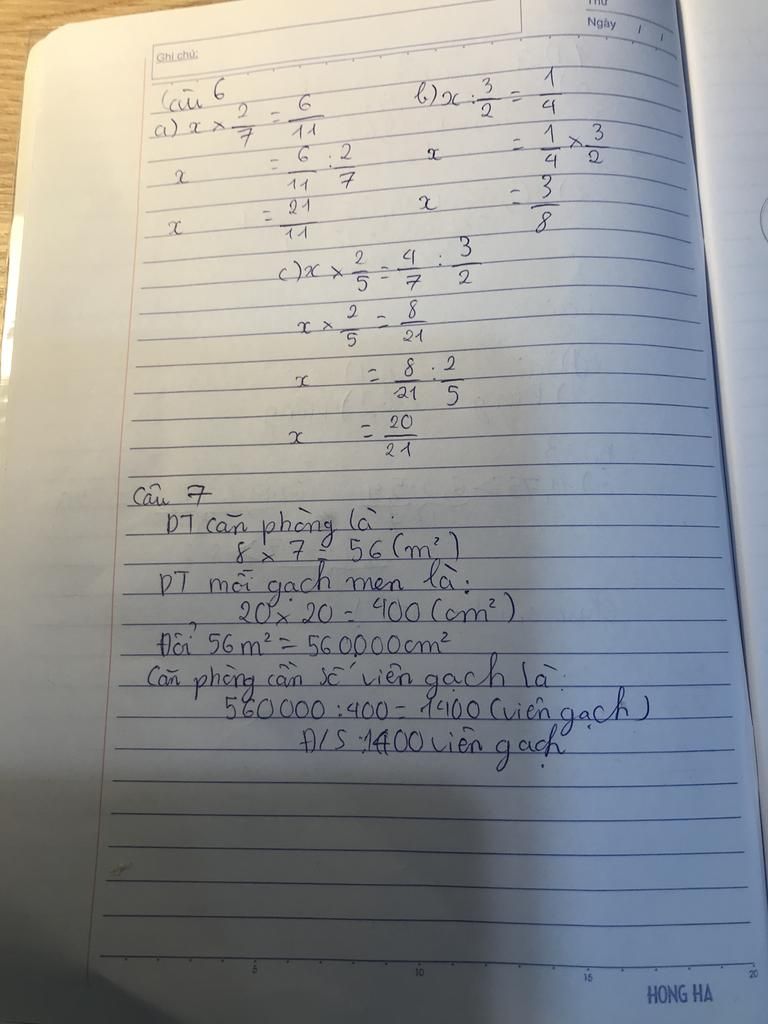 Thứ
Ngày / /
Ghi chú:
Câu 6
a) x × 2/7 = 6/11    b) x : 3/2 = 1/4
x = 6/11 : 2/7    x = 1/4 × 3/2
x = 21/11    x = 3/8
c) x × 2/5 = 4/7 : 3/2
x × 2/5 = 8/21
x = 8/21 : 2/5
x = 20/21
Câu 7
DT căn phòng là:
8 × 7 = 56 (m²)
DT mỗi gạch men là:
20 × 20 = 400 (cm²)
Đổi 56 m² = 560000 cm²
Căn phòng cần số viên gạch là:
560000 : 400 = 1400 (viên gạch)
Đ/S : 1400 viên gạch
5 10 15 20
HONG HA